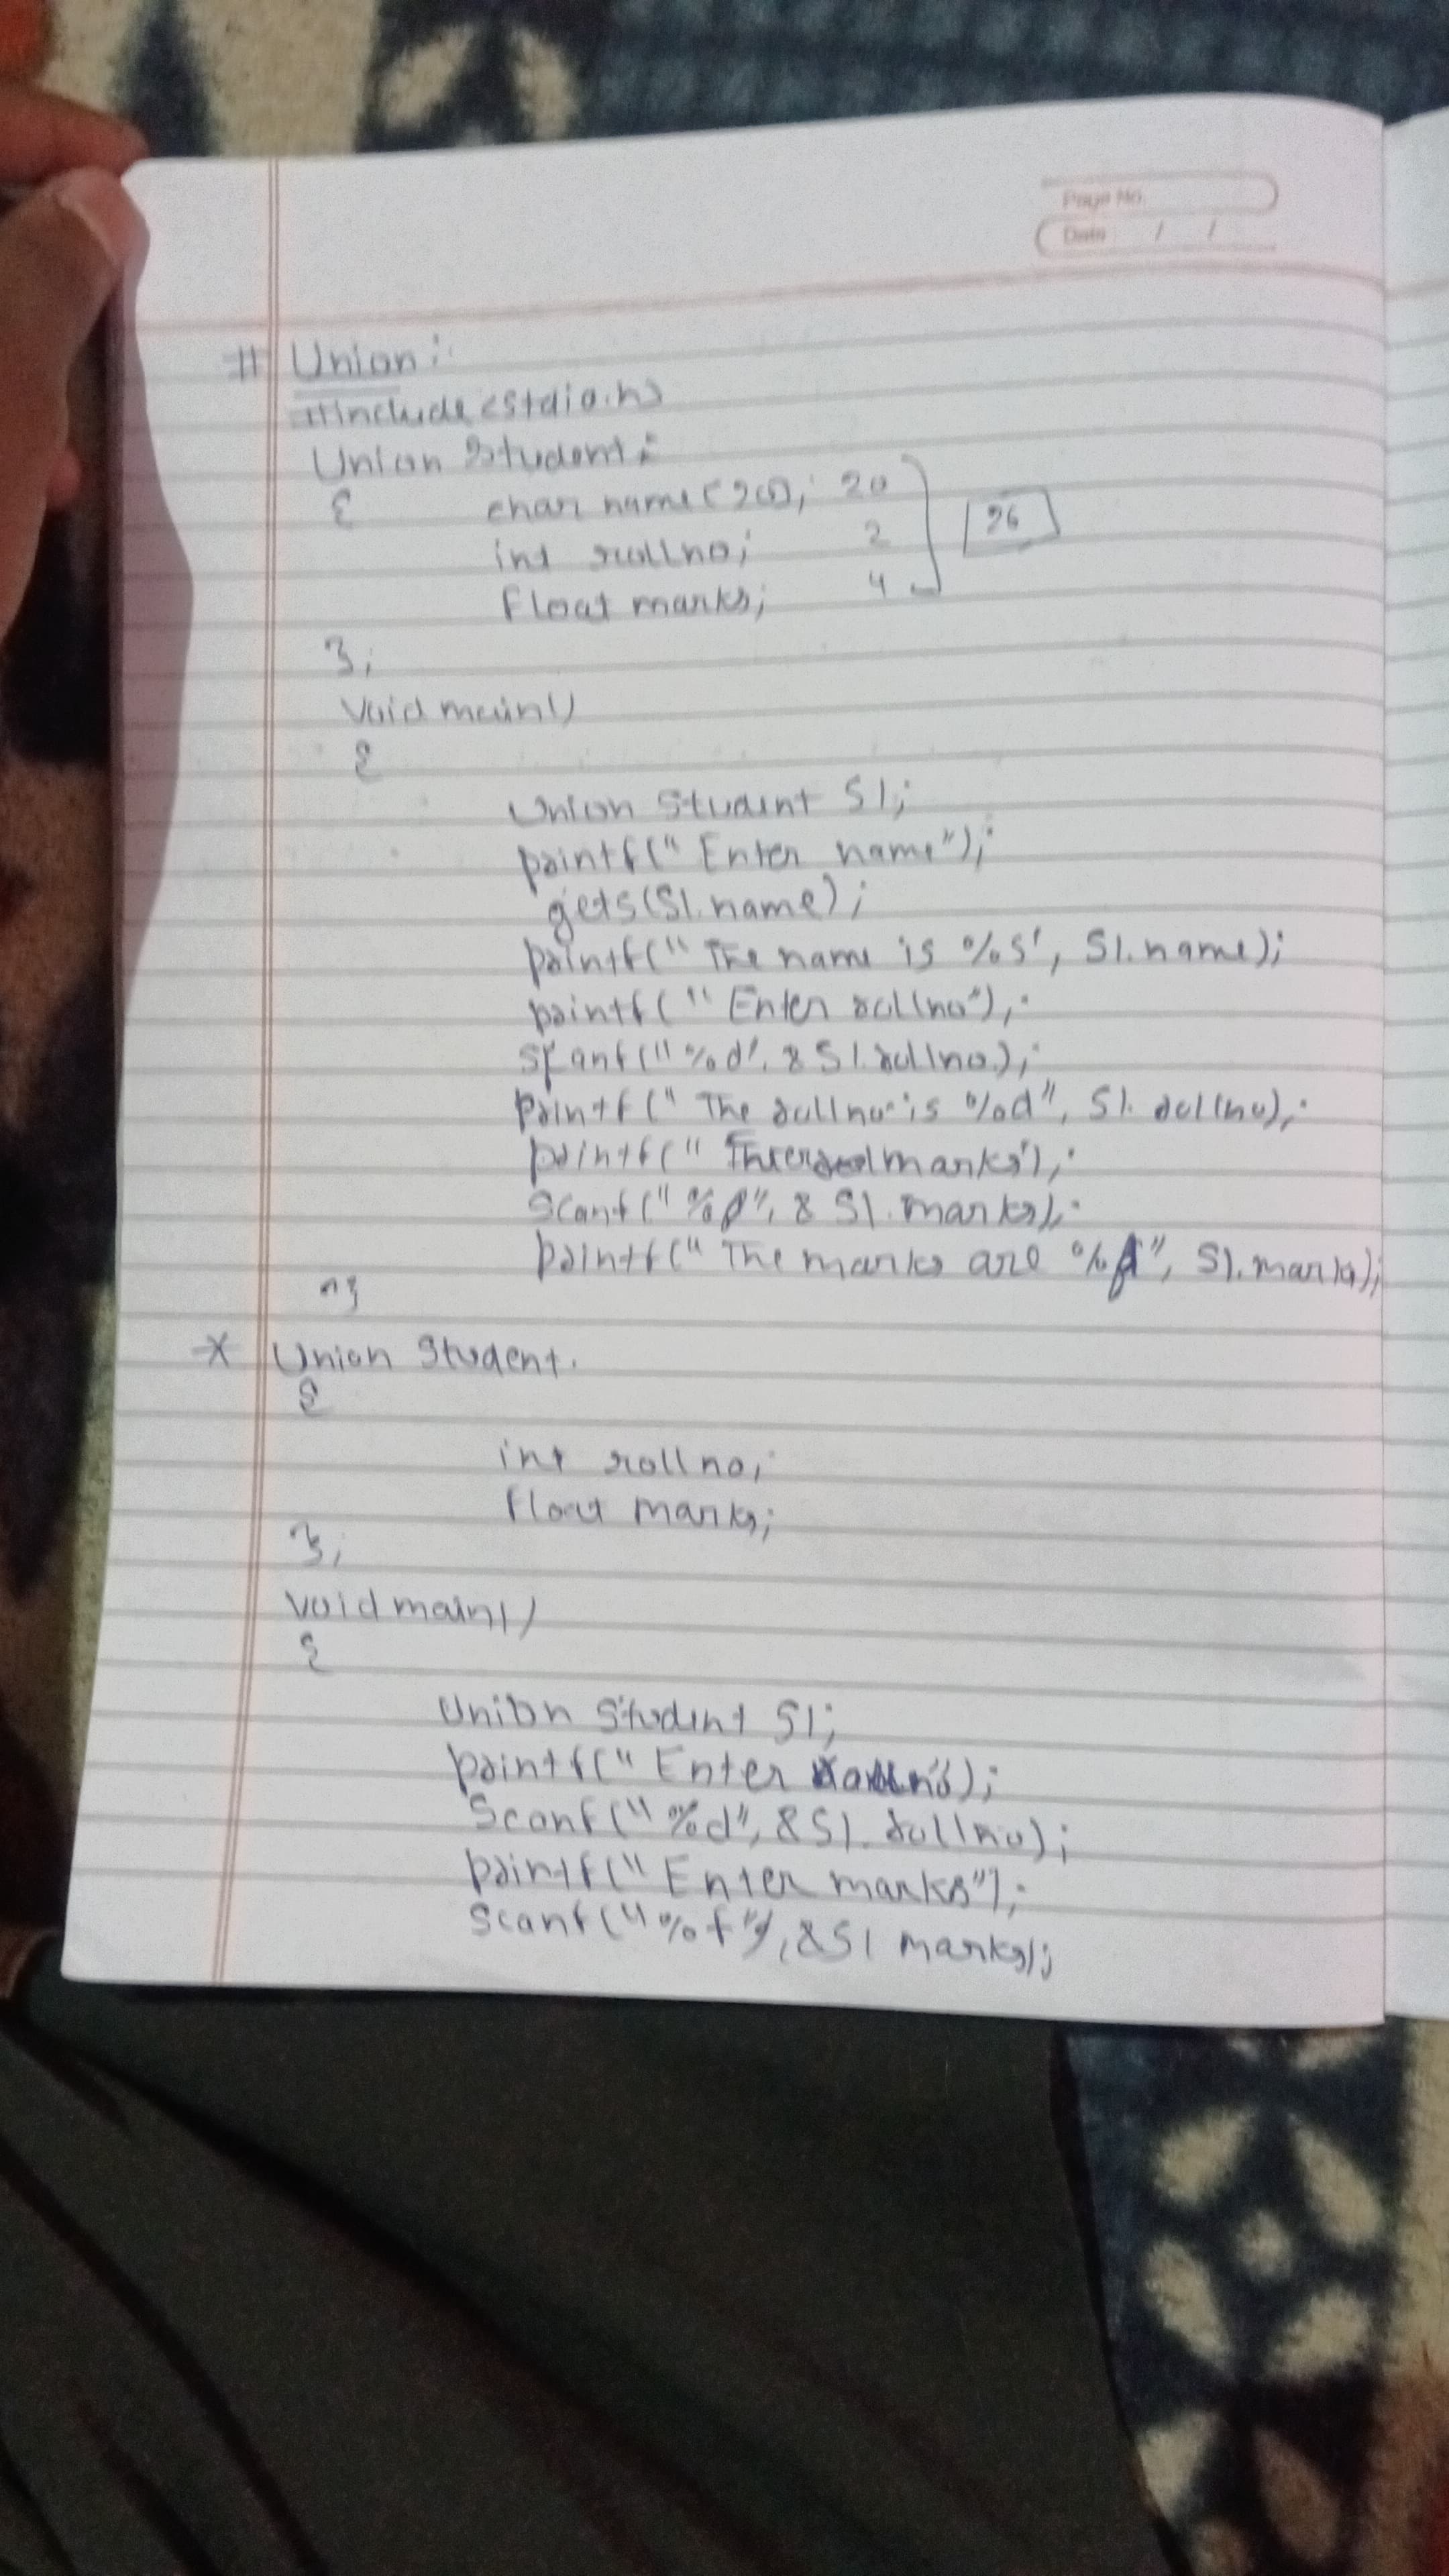 Page No.
Date / /
# Union:
#include <stdio.h>
Union Student:
{ char name(20); 20
int rollno; 2 26
float marks; 4
};
void main()
{
Union Student S1;
printf(" Enter name");
gets(S1.name);
printf(" The name is %s", S1.name);
printf(" Enter rollno");
scanf("%d", & S1.rollno.);
printf(" The rollno is %d", S1.rollno);
printf(" marks");
Scanf("%f", & S1.marks);
printf(" The marks are %f", S1.marks);
}
* Union Student.
{
int rollno;
float marks;
};
void main()
{
Union Student S1;
printf(" Enter");
Scanf("%d", &S1.rollno);
printf(" Enter marks");
Scanf("%f", &S1 marks);